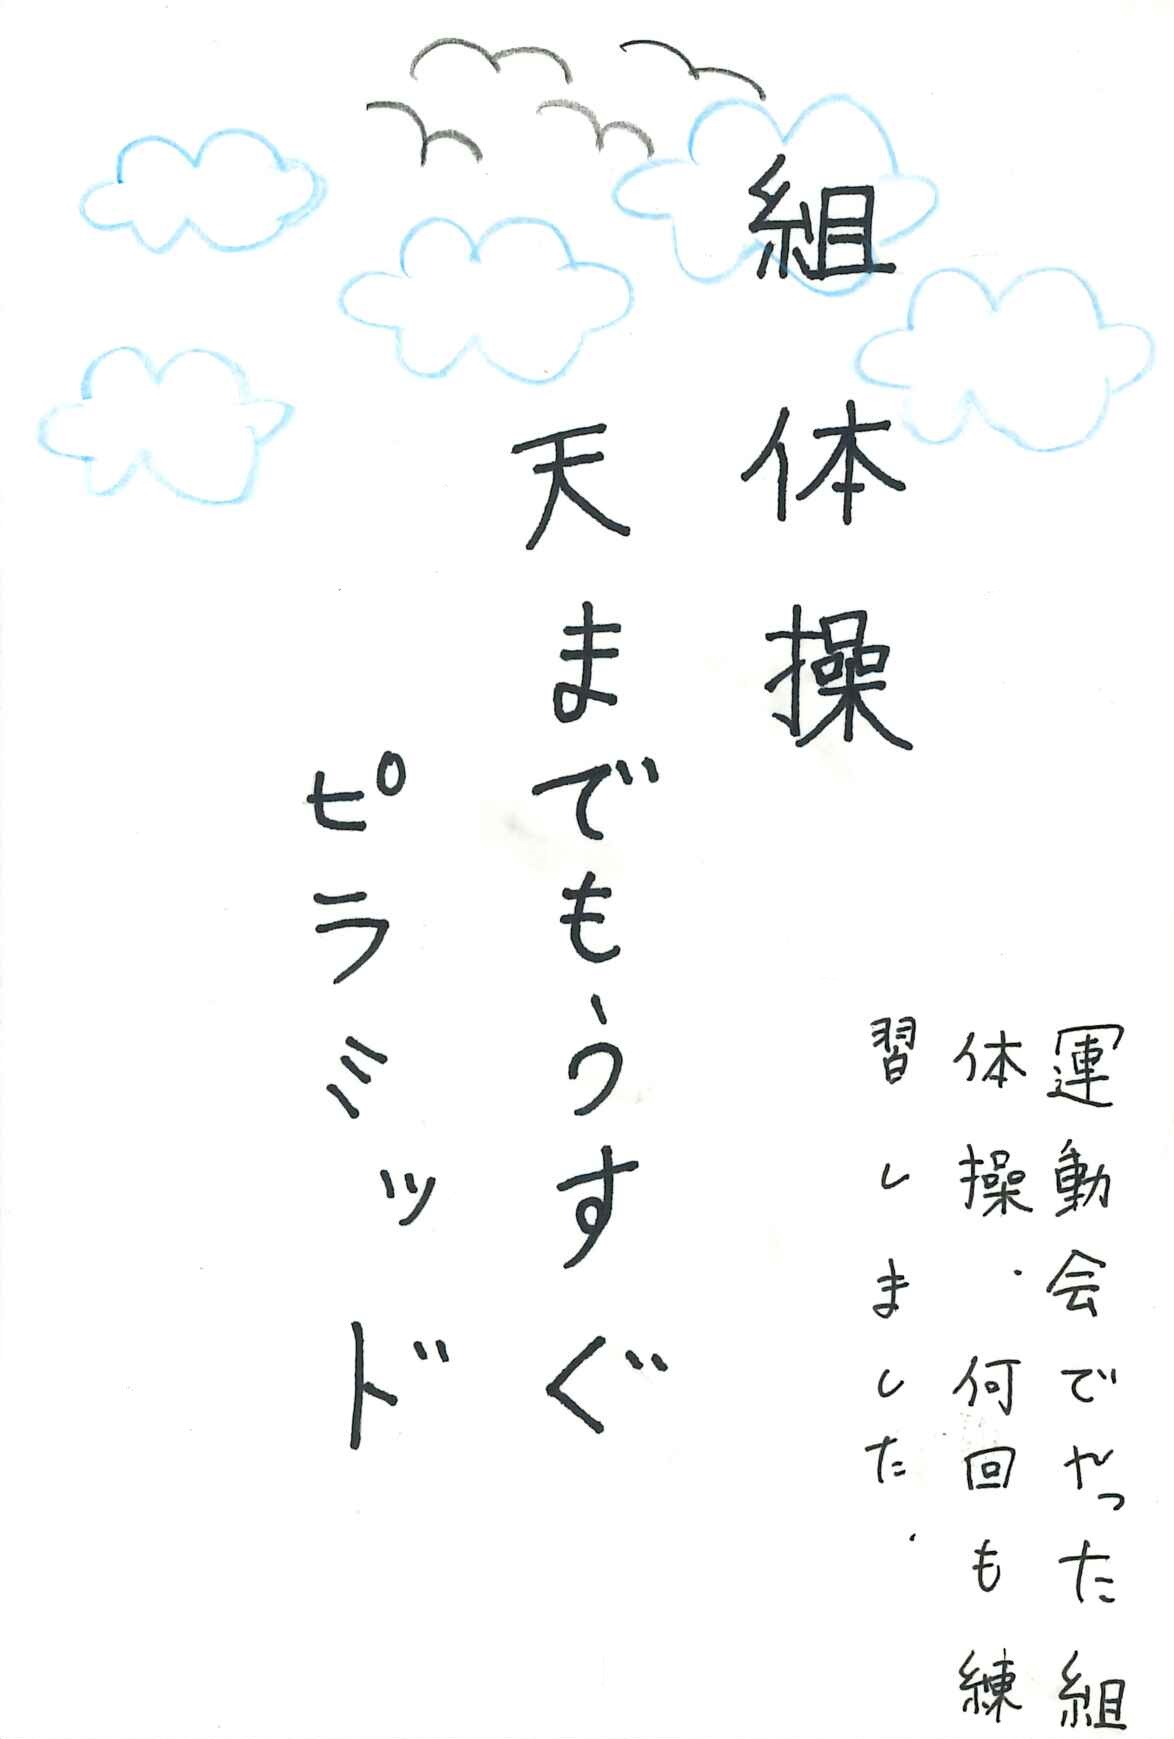 組体操
天までもうすぐ
ピラミッド
運動会でやった組
体操.何回も練
習しました.